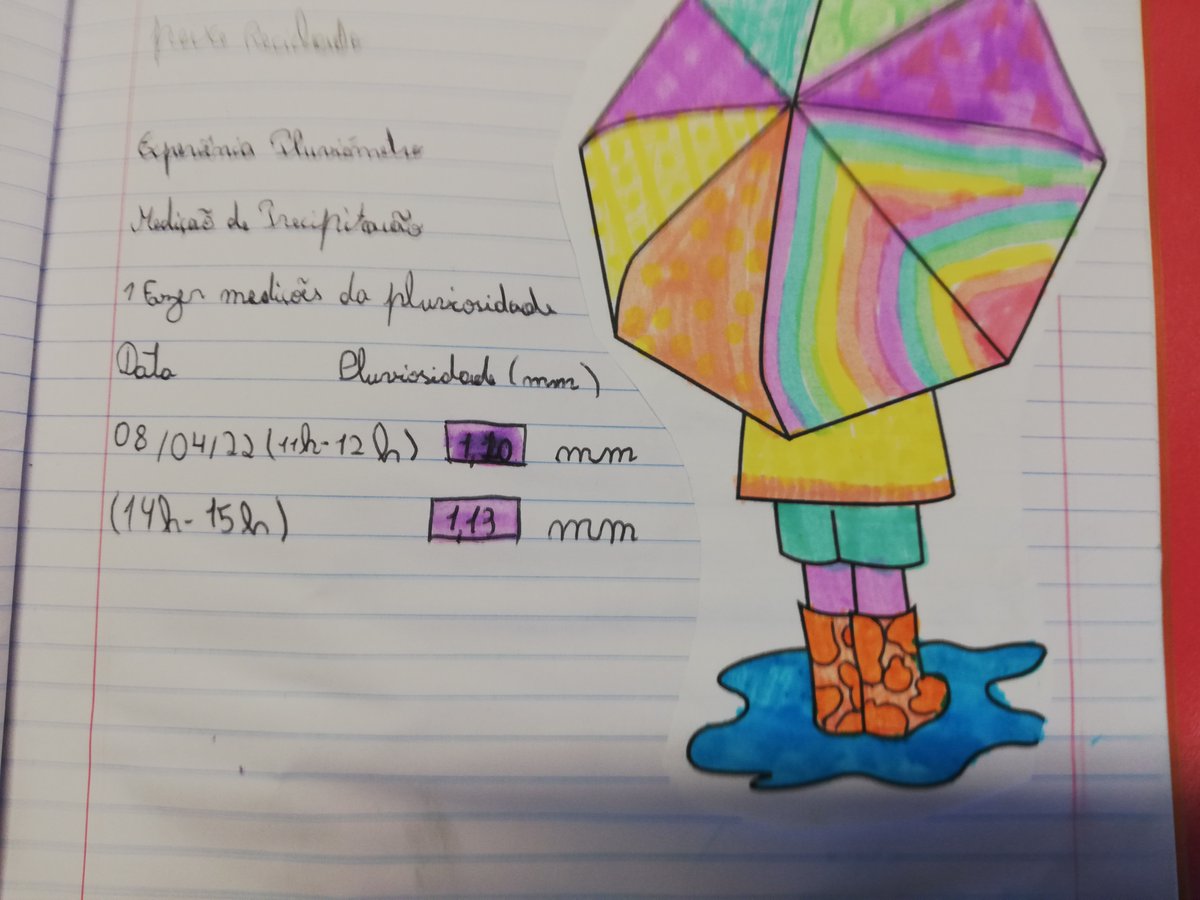 Experiênia Pluviómetro
Medição de Precipitação
1 Fazer medicõis da pluviosidade
Data Pluviosidade (mm)
08/04/22 (11h-12h) 1,10 mm
(14h-15h) 1,13 mm